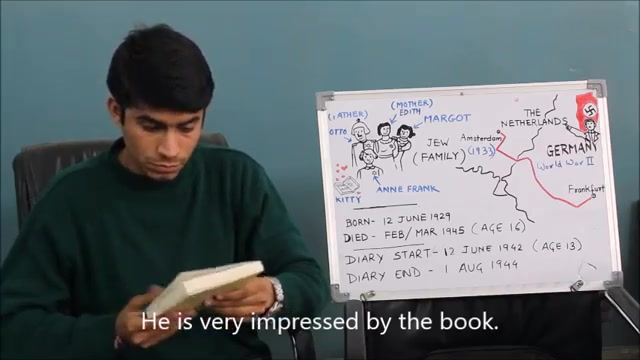 (FATHER)
OTTO
(MOTHER)
EDITH
MARGOT
ANNE FRANK
KITTY
JEW
(FAMILY)
THE
NETHERLANDS
Amsterdam
(1933)
GERMANY
World War II
Frankfurt
BORN- 12 JUNE 1929
DIED - FEB/MAR 1945 (AGE 16)
DIARY START- 12 JUNE 1942 (AGE 13)
DIARY END - 1 AUG 1944
He is very impressed by the book.